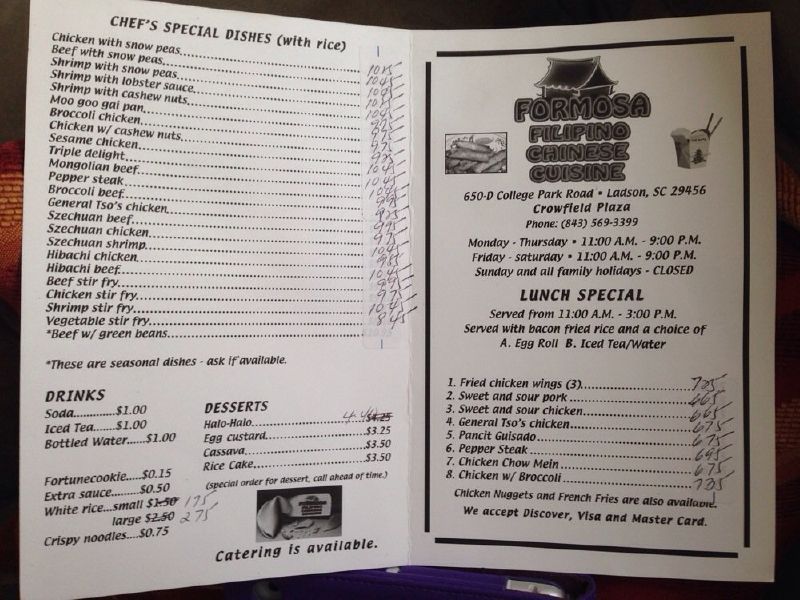 CHEF'S SPECIAL DISHES (with rice)
Chicken with snow peas
Beef with snow peas
Shrimp with snow peas
Shrimp with lobster sauce
Shrimp with cashew nuts
Moo goo gai pan
Broccoli chicken
Chicken w/ cashew nuts
Sesame chicken
Triple delight
Mongolian beef
Pepper steak
Broccoli beef
General Tso's chicken
Szechuan beef
Szechuan chicken
Szechuan shrimp
Hibachi chicken
Hibachi beef
Beef stir fry
Chicken stir fry
Shrimp stir fry
Vegetable stir fry
*Beef w/ green beans
*These are seasonal dishes - ask if available.
DRINKS
Soda.............$1.00
Iced Tea......$1.00
Bottled Water......$1.00
Fortunecookie.....$0.15
Extra sauce........$0.50
White rice...small $1.50 175
large $2.50 275
Crispy noodles....$0.75
DESSERTS
Halo-Halo $4.25
Egg custard $3.25
Cassava $3.50
Rice Cake $3.50
(special order for dessert, call ahead of time.)
Catering is available.
FORMOSA
FILIPINO
CHINESE
CUISINE
650-D College Park Road • Ladson, SC 29456
Crowfield Plaza
Phone: (843) 569-3399
Monday - Thursday • 11:00 A.M. - 9:00 P.M.
Friday - saturday • 11:00 A.M. - 9:00 P.M.
Sunday and all family holidays - CLOSED
LUNCH SPECIAL
Served from 11:00 A.M. - 3:00 P.M.
Served with bacon fried rice and a choice of
A. Egg Roll B. Iced Tea/Water
1. Fried chicken wings (3) 725
2. Sweet and sour pork 665
3. Sweet and sour chicken 665
4. General Tso's chicken 675
5. Pancit Guisado 675
6. Pepper Steak 695
7. Chicken Chow Mein 675
8. Chicken w/ Broccoli 725
Chicken Nuggets and French Fries are also available.
We accept Discover, Visa and Master Card.